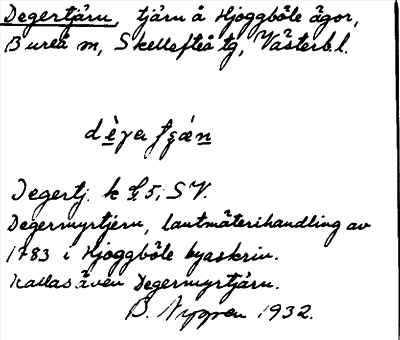 Degertjärn, tjärn å Hjoggböle ägor,
Bureå sn, Skellefteå tg, Västerb.l.
Degertj. k 5; SV.
Degermyrtjern, lantmäterihandling av
1783 i Hjoggböle byaskrin.
Kallas även Degermyrtjärn.
B. Nygren 1932.